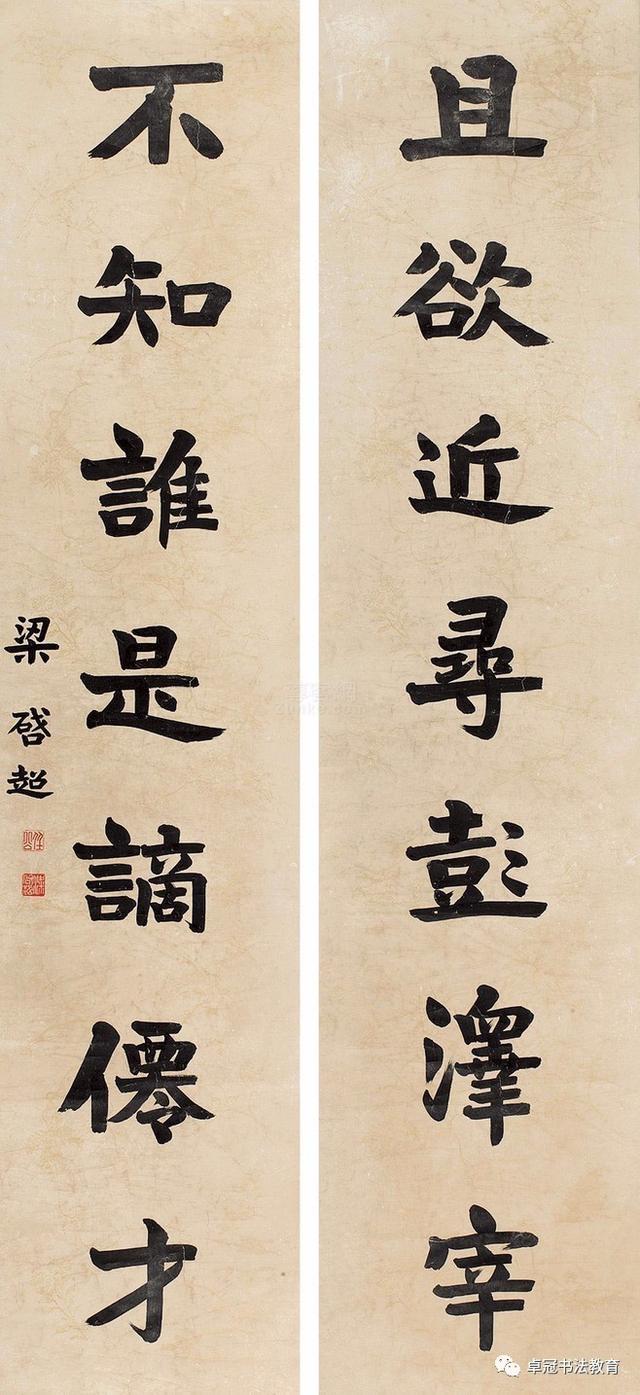 且欲近尋彭澤宰
不知誰是謫僊才
梁啓超
卓冠书法教育